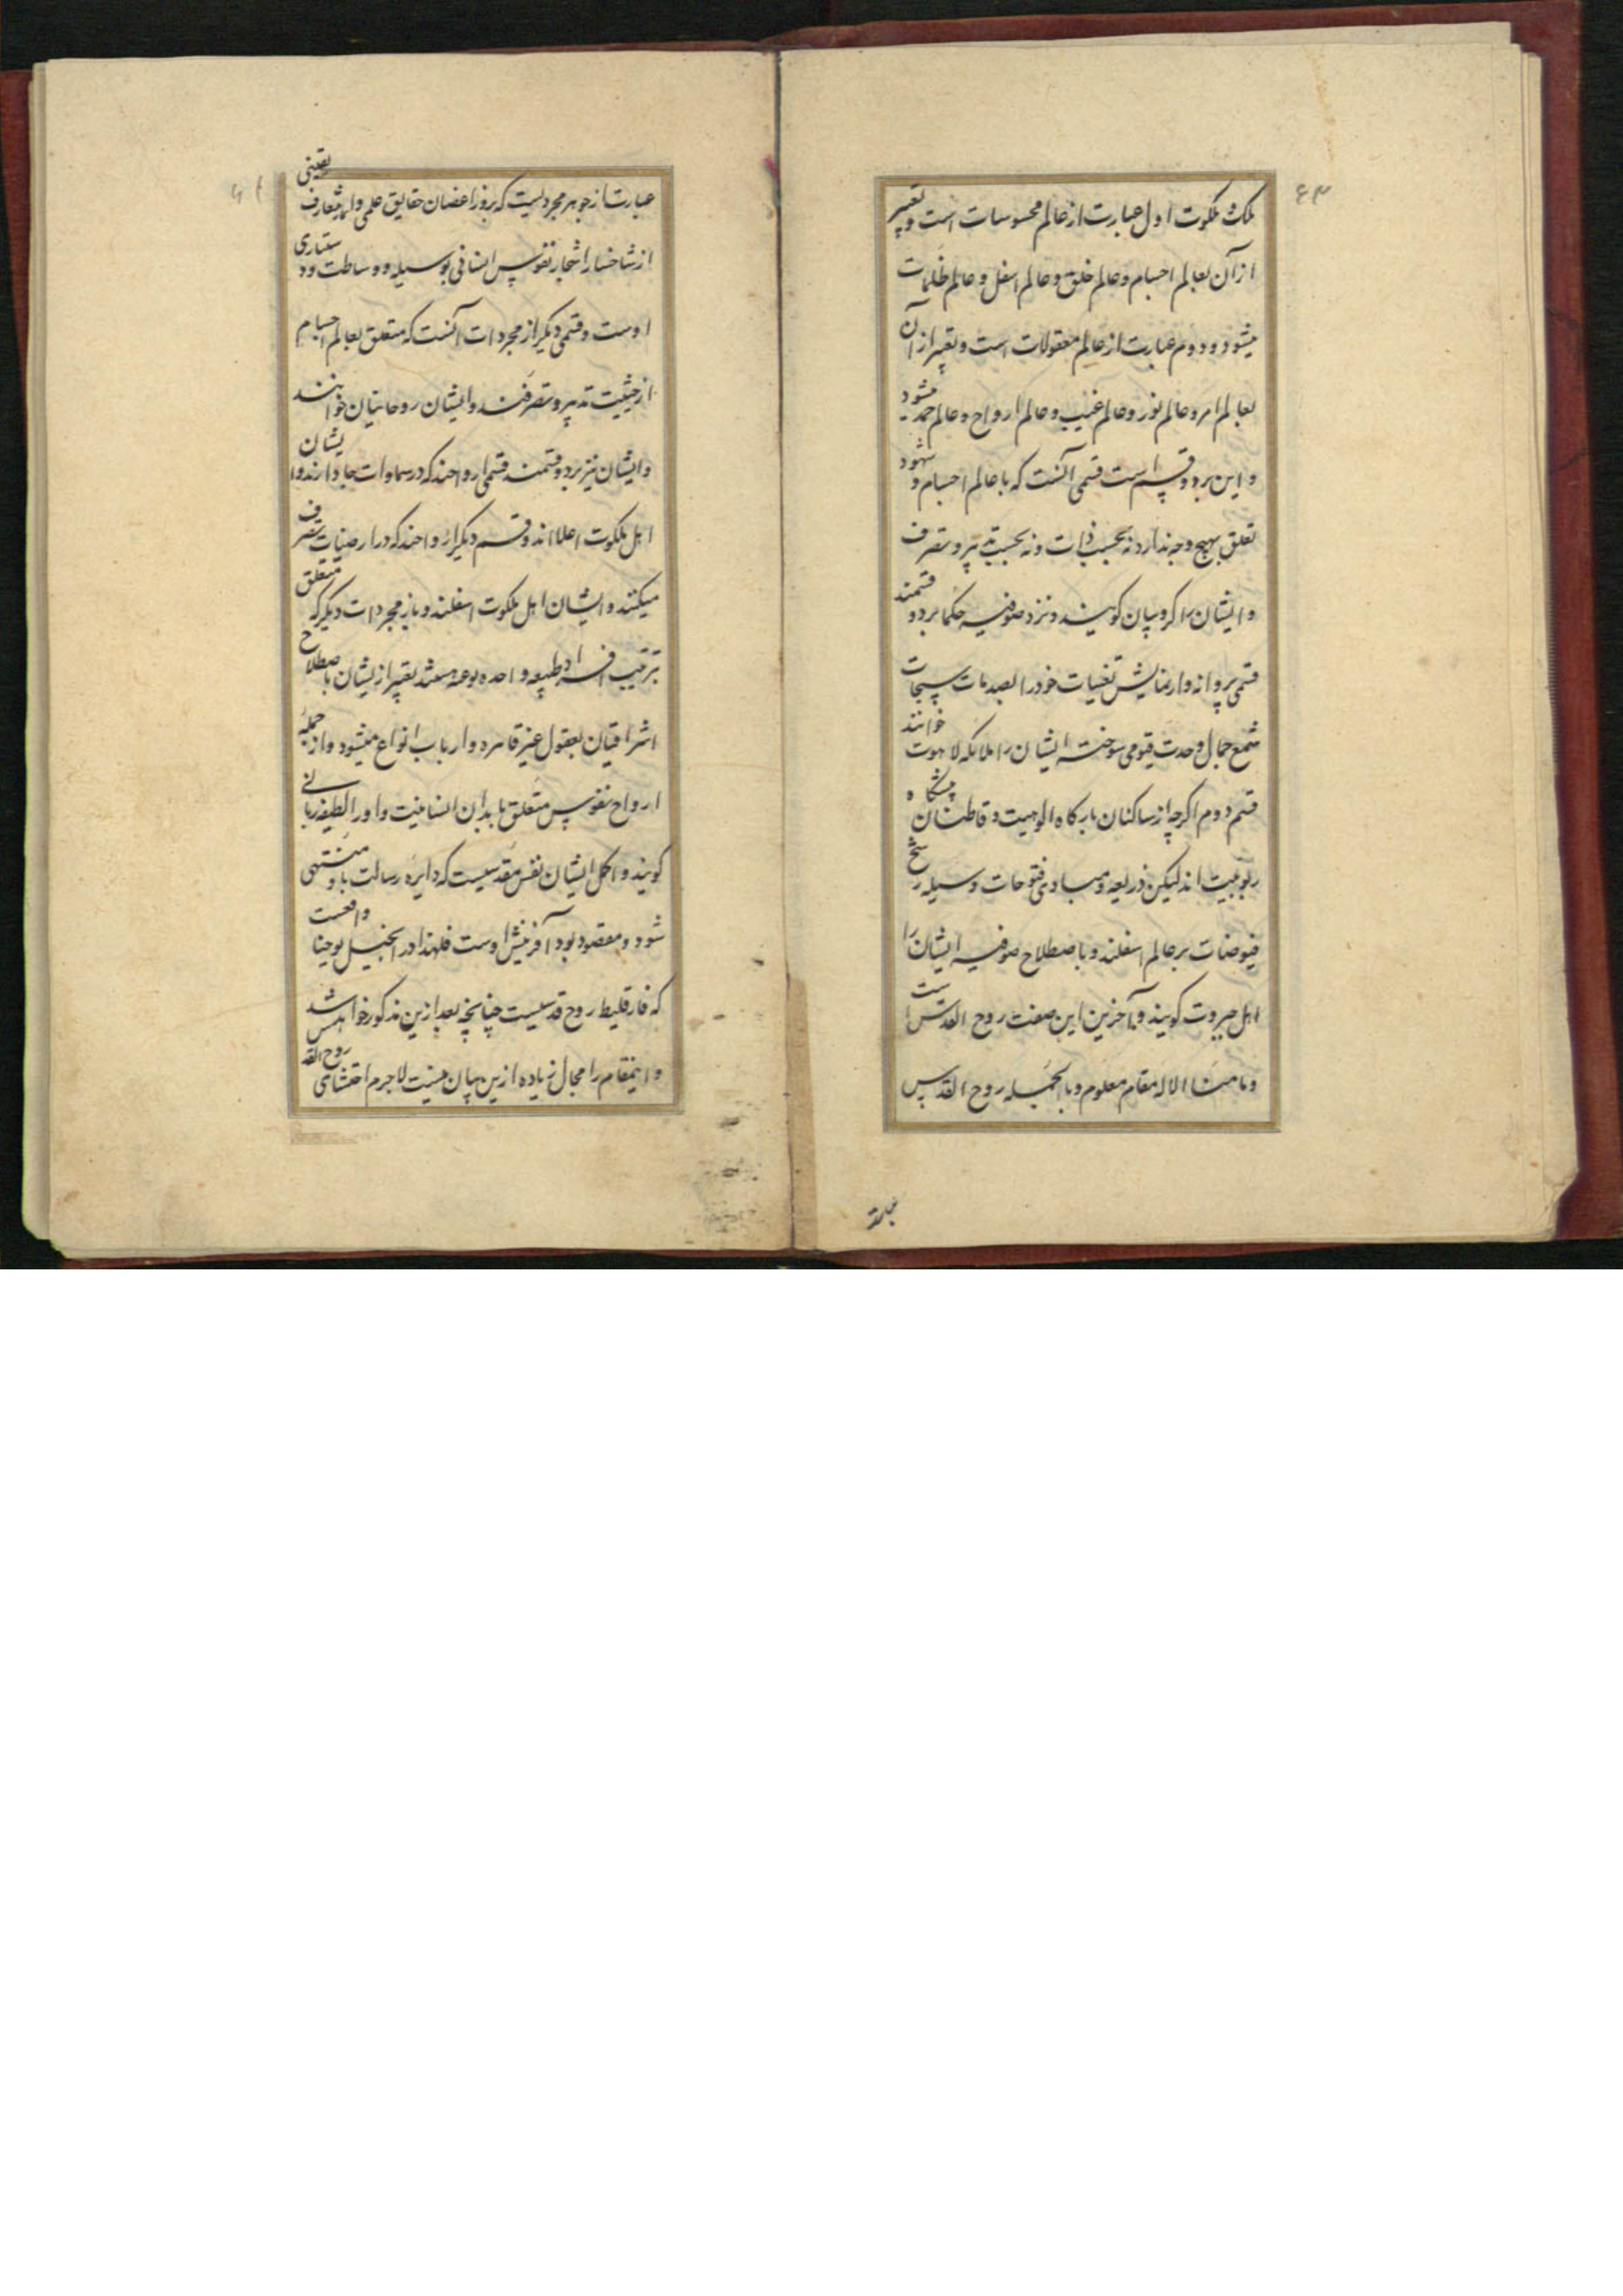 ۶۳
ملک و ملکوت اول عبارت از عالم محسوسات است و تعبیر
از آن بعالم اجسام و عالم خلق و عالم اسفل و عالم ظلمات
میشود و دوم عبارت از عالم معقولات است و تعبیر از آن
بعالم امر و عالم نور و عالم غیب و عالم ارواح و عالم حمد میشود
و این بر دو قسم است قسمی آنست که با عالم اجسام و شهود
تعلق بهیچ وجه ندارد نه بحسب ذات و نه بحسب تدبیر و تصرف
و ایشان را کروبیان کویند و نزد صوفیه حکما بر دو قسمند
قسمی پروانه وار نمایش تعینات خود را بصدمات سبحات
شمع جمال وحدت قیومی سوخته ایشان را ملائکه لاهوت خوانند
قسم دوم اکرچه از ساکنان بارکاه الوهیت و قاطنان پیشکاه
ربوبیت اند لیکن ذریعه و مبادی فتوحات و سیله رشح
فیوضات بر عالم اسفلند و باصطلاح صوفیه ایشان را
اهل جبروت کویند و آخرین این صفت روح القدس است
و ما منا الا له مقام معلوم و بالجمله روح القدس
عبارت از جوهر مجردیست که بروز اغصان حقایق علمی و معارف یقینی
از شاخسار اشجار نفوس انسانی بوسیله و وساطت
اوست و قسمی دیکر از مجردات آنست که متعلق بعالم اجسام
از حیثیت تدبیر و تصرفند و ایشان روحانیان خوانند
و ایشان نیز بر دو قسمند قسمی ارواحند که در سماوات جا دارند و ایشان
اهل ملکوت اعلا اند و قسم دیکر ارواحند که در ارضیات تصرف
میکنند و ایشان اهل ملکوت اسفلند و باز مجردات دیکر که متعلق
بترتیب افراد طبیعه واحده نوعیه تعبیر از یشان باصطلاح
اشراقیان بعقول غیر قاهره و ارباب انواع میشود و از جمله
ارواح نفوس متعلق بابدان انسانیت و او را لطیفه ربانی
کویند و اکمل ایشان نفس مقدسیست که دایره رسالت باو منتهی
شود و مقصود بود آفرینش اوست فلهذا در انجیل یوحنا واقعست
که فارقلیط روح قدسیست چنانچه بعد ازین مذکور خواهد شد
و اینمقام را مجال زیاده ازین بیان نیست لاجرم روح القدس